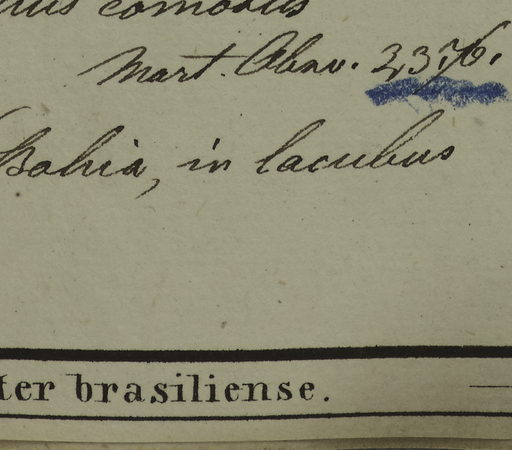 comosus
Mart. Obsv. 2376.
Bahia, in lacubus
ter brasiliense.